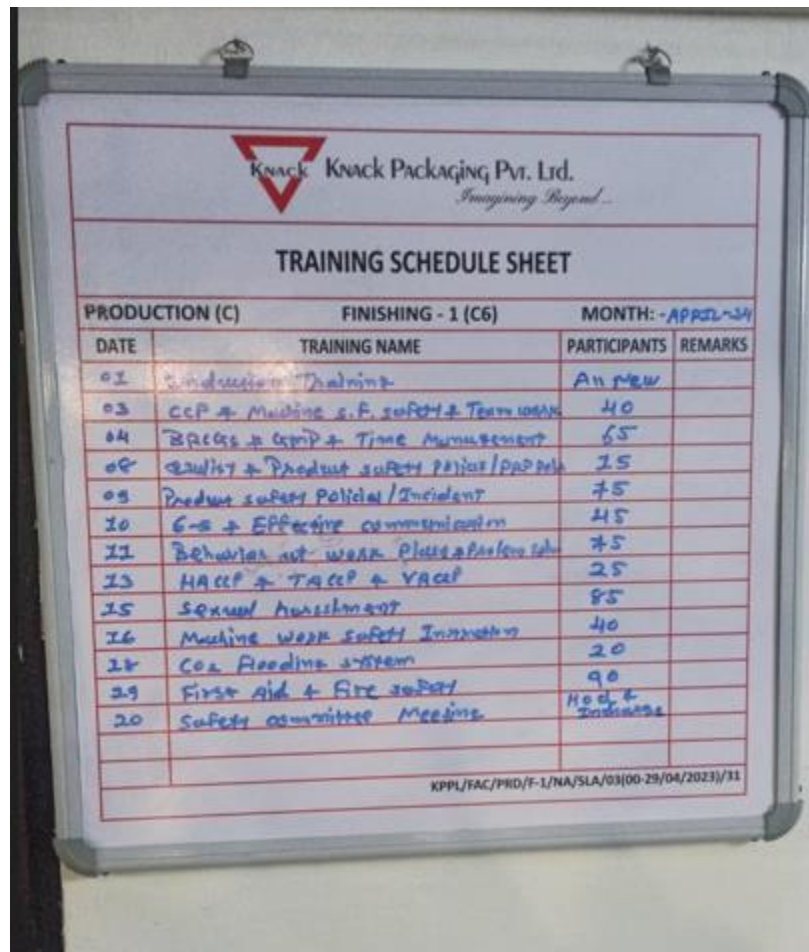 KNACK KNACK PACKAGING PVT. LTD.
Imagining Beyond...
TRAINING SCHEDULE SHEET
PRODUCTION (C) FINISHING - 1 (C6) MONTH: - APRIL-24
DATE TRAINING NAME PARTICIPANTS REMARKS
01 Training All New
03 CCP & Machine S.F. Safety & Team work 40
04 BRCGS & GMP & Time 65
08 & Product safety 15
09 Product safety Policies/Incident 75
10 6-S & Effective communication 45
11 Behavior work Place & 75
13 HACCP & TACCP & VACCP 25
15 Sexual 85
16 Machine work safety 40
18 CO2 Flooding system 20
19 First Aid & Fire safety 90
20 Safety committee Meeting Hod &
KPPL/FAC/PRD/F-1/NA/SLA/03(00-29/04/2023)/31